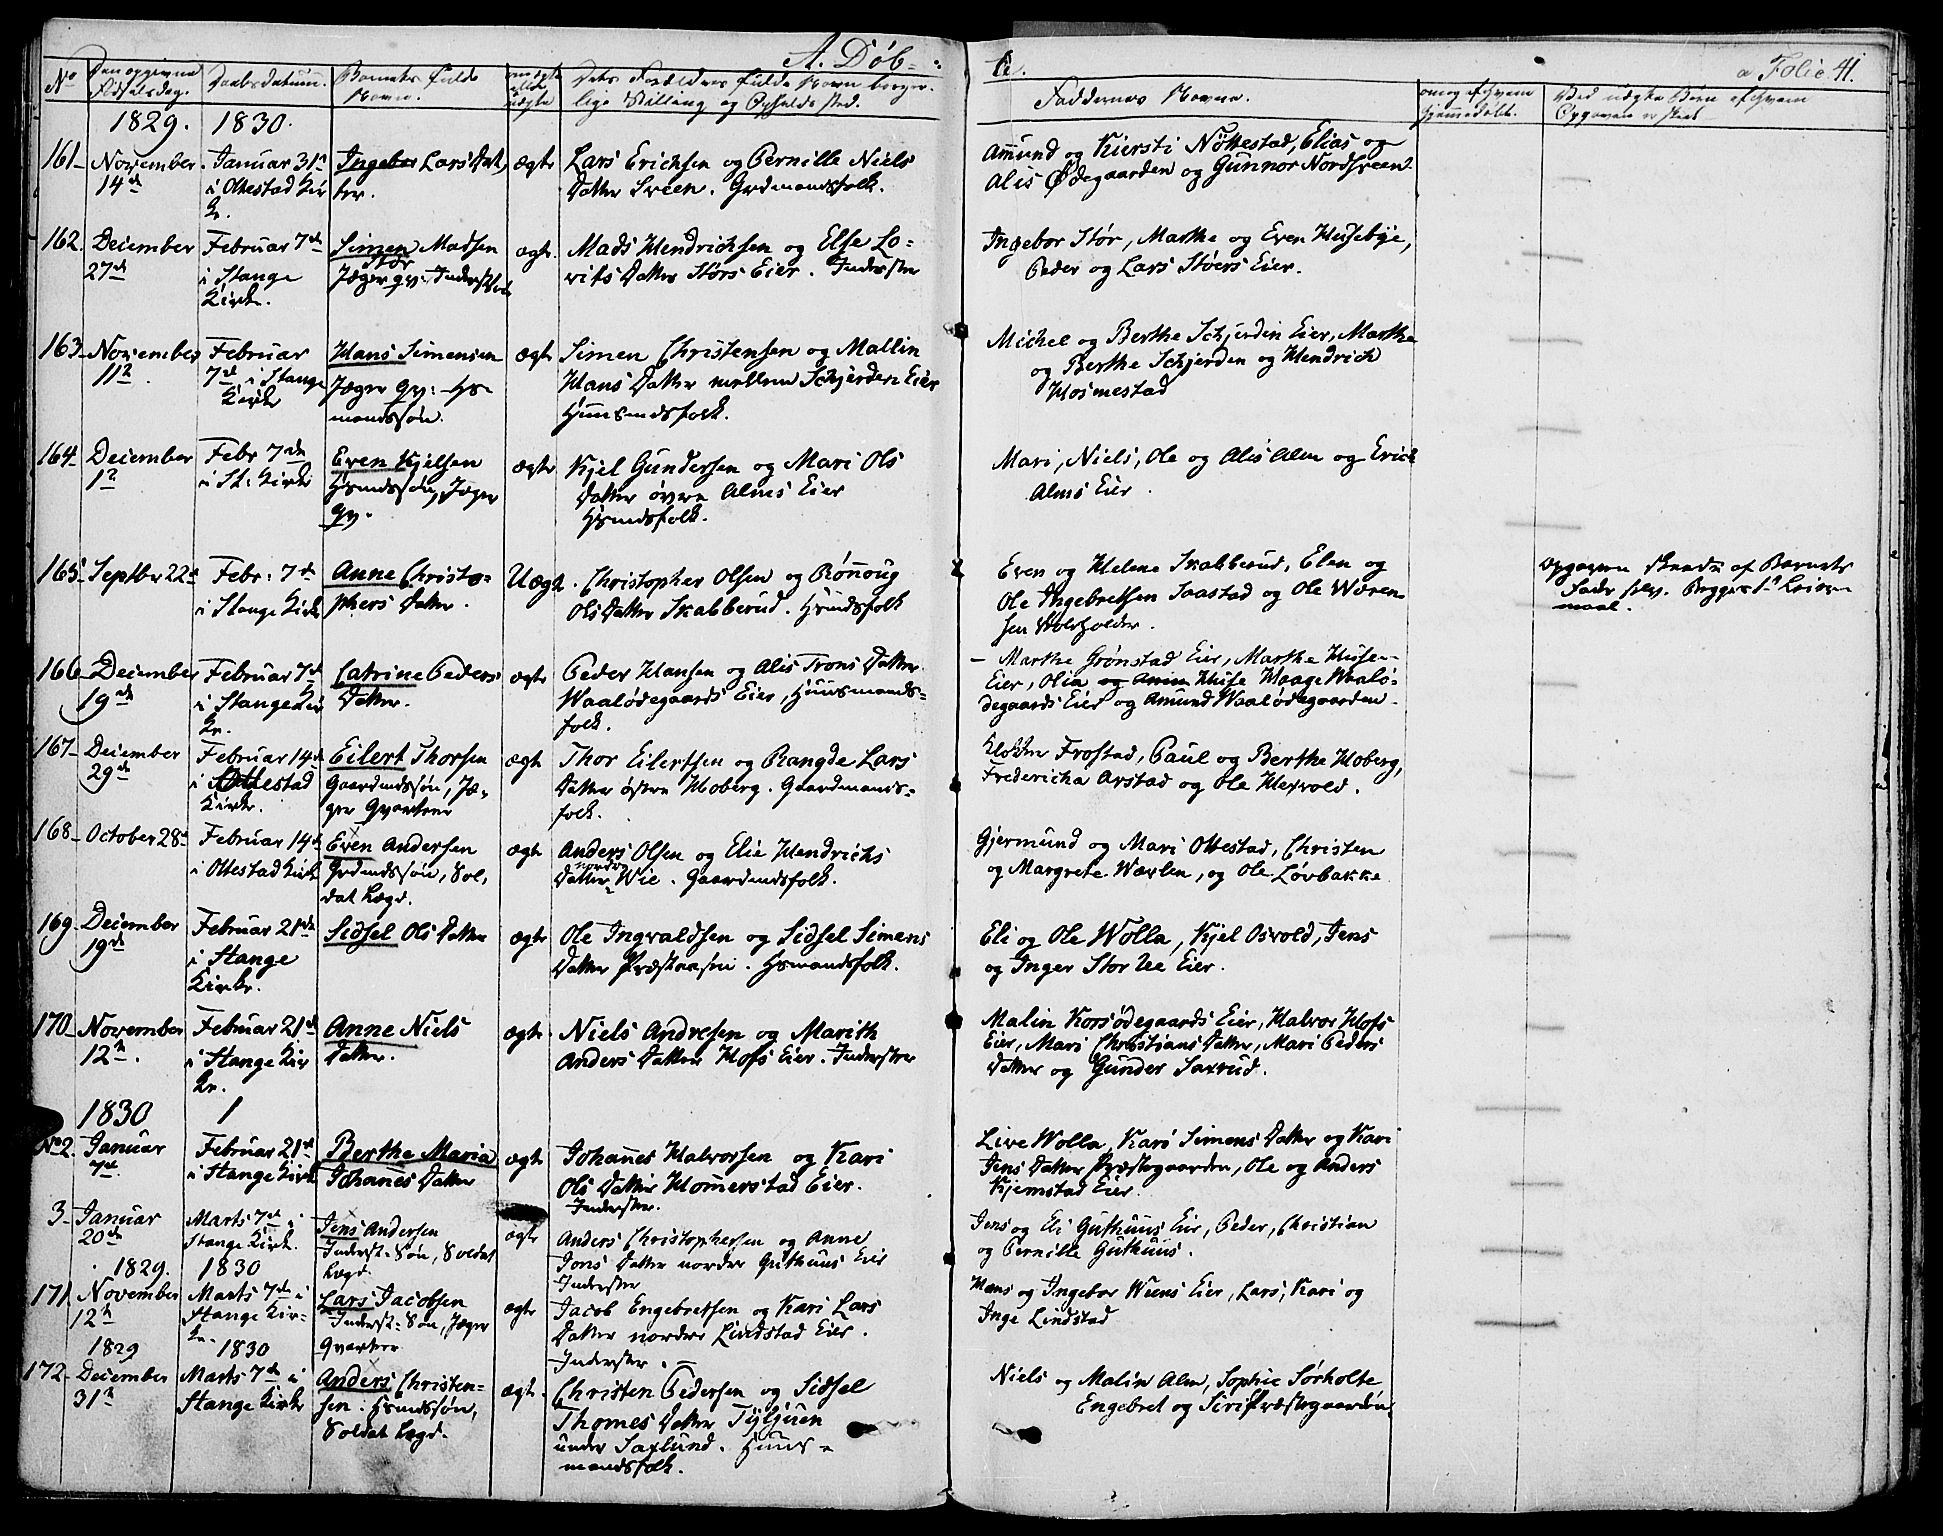 A. Døb- te.
a Folio 41.
No Den opgivne Fødselsdag. Daabsdatum. Barnets fulde Navn. om ægte eller uægte Dets Forældres fulde Navn borger-
lige Stilling og Opholdssted. Faddernes Navne. om og af hvem hjemmedøbt. Ved uægte Børn af hvem Opgaven er skeet
1829. 1830.
161- November 14de Januar 31te i Ottestad Kir
ke.
Ingebor Lars Dat,
ter.
ægte
Lars Erichsen og Pernille Niels
Datter Sveen. Grdmandsfolk.
Amund og Kiersti Nöttestad, Elias og
Alis Ødegaarden og Gunnor Nordsveen
162. December
27de
Februar 7de
i Stange
Kirke.
Simen Madsen
Stör
Jæger Qv: Inderst
ægte.
Mads Hendrichsen og Else Lo-
rits Datter Störs Eier. Inderster
Ingebor Stör, Marthe og Even Husebye,
Peder og Lars Stöers Eier.
163- November
11te
Februar
7de i Stange
Kirke
Hans Simensen
Jæger Qv: Hs-
mandssön.
ægte
Simen Christensen og Mallin
Hans Datter mellem Schjerden Eier
Huusmdsfolk.
Michel og Berthe Schjerden Eier, Marthe
og Berthe Schjerden og Hendrich
Hosmestad
164- December
1te
Febr 7de
i St: Kirke
Even Kjelsen
Hsmdssön, Jæger
Qv.
ægte
Kjel Gundersen og Mari Ols
Datter övre Alms Eier
Hsmdsfolk.
Mari, Niels, Ole og Alis Alm og Erich
Alms Eier.
165- Septbr 22de
Febr: 7de
i Stange Kirke
Anne Christo-
phers Datter.
Uægte.
Christopher Olsen og Rönnoug
Ols Datter Skabberud. Hsmdsfolk
Even og Helene Skabberud, Elen og
Ole Ingebretsen Saastad og Ole Woren-
sen
Opgaven skeede af Barnets
Fader selv. Begges 1te Leier-
maal.
166- December
19de
Februar 7de
i Stange Kir
ke.
Catrine Peders
Datter.
ægte
Peder Hansen og Alis Trons Datter
Waalödegaards Eier, Huusmands-
folk.
- Marthe Grönstad Eier, Marthe Huse-
Eier, Olia og Anne Huse Haage Waalö-
degaards Eier og Amund Waalödegaarden
167- December
29de
Februar 14de
i Ottestad
Kirke.
Eilert Thorsen
Gaardmdssön, Jæ-
ger Qvarteer
ægte
Thor Eilertsen og Rangde Lars
Datter östre Hoberg. Gaardmands-
folk.
Klokker Frostad, Paul og Berthe Hoberg,
Fredericha Arstad og Ole Hervold.
168- October 28de
Februar 14de
i Ottestad Kirke
Even Andersen
Grdmdssön, Sol,
dat Lægd.
ægte
Anders Olsen og Elie Hendrichs
Datter nordre Wie. Gaardmdsfolk.
Gjermund og Mari Ottestad, Christen
og Margrete Worlen, og Ole Lövbakke
169- December
19de
Februar 21de
i Stange
Kirke.
Sidsel Ols Datter
ægte
Ole Ingvaldsen og Sidsel Simens
Datter Præstaasen. Hsmandsfolk.
Eli og Ole Wolla, Kjel Osvold, Jens
og Inger Storlie Eier.
170- November
12te.
Februar 21de
i Stange Kir
ke.
Anne Niels
Datter.
ægte
Niels Andresen og Marith
Anders Datter Hofs Eier. Inderster
Malin Korsödegaards Eier, Halvor Hofs
Eier, Mari Christians Datter, Mari Peders
Datter og Gunder Saxrud.
1830 1
No 2. Januar
7de.
Februar 21de
i Stange Kirke
Berthe Maria
Johannes Datter
ægte
Johannes Halvorsen og Kari
Ols Datter Hommerstad Eier.
Inderster.
Live Wolla, Kari Simens Datter og Kari
Jens Datter Præstegaarden, Ole og Anders
Kjemstad Eier.
3- Januar
20de
Marts 7de i
Stange Kirke.
Jens Andersen
Inderst-Sön, Soldat
Lægd.
ægte
Anders Christophersen og Anne
Jons Datter nordre Guthuus Eier
Inderster
Jens og Eli Guthuus Eier, Peder, Christian
og Pernille Guthuus.
1829. 1830
171- November
12te
Marts 7de i
Stange Kir-
ke.
Lars Jacobsen
Inderst-Sön, Jæger
Qvarteer
ægte
Jacob Engebretsen og Kari Lars
Datter nordre Lindstad Eier.
Inderster.
Hans og Ingebor Wiens Eier, Lars, Kari og
Inge Lindstad
1829 1830
172- December
31te
Marts 7de i
Stange Kirke
Anders Christen-
sen. Hsmdssön,
Soldat Lægd.
ægte.
Christen Pedersen og Sidsel
Thomes Datter Tyljuen
under Saxlund. Huus-
mandsfolk.
Niels og Malin Alm, Sophie Sörholte
Engebret og Siri Præstegaarden.